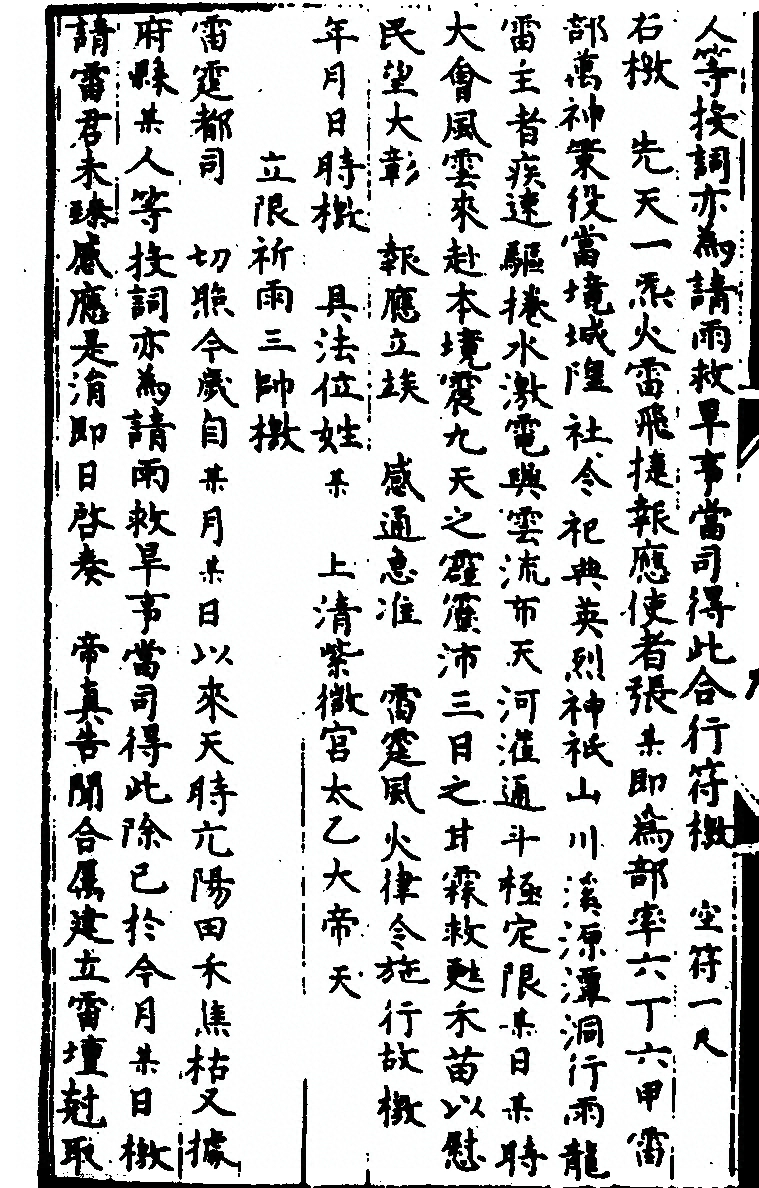 人等投詞亦為請雨救旱事當司得此合行符檄　空符一尺
右檄　先天一炁火雷飛捷報應使者張某即為部率六丁六甲雷
部萬神業役當境城隍社令祀典英烈神祇山川溪源潭洞行雨龍
雷主者疾速驅捲水激電興雲流布天河灌通斗極定限某日某時
大會風雲來赴本境震九天之霹靂沛三日之甘霖救甦禾苗以慰
民望大彰　報應立竢　感通急准　雷霆風火律令施行故檄
年月日時檄　具法位姓某　上清紫微宮太乙大帝天
立限祈雨三帥檄
雷霆都司　切照今歲自某月某日以來天時亢陽田禾焦枯又據
府縣某人等投詞亦為請雨救旱事當司得此除已於今月某日檄
請雷君未臻感應是涓即日啓奏　帝真告聞合屬建立雷壇尅取